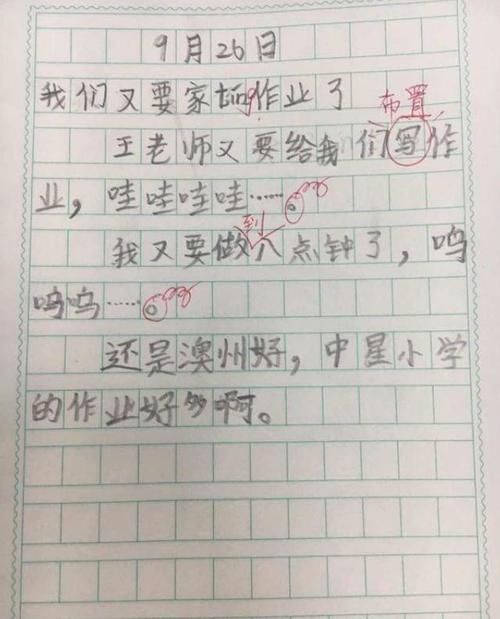 9月26日
我们又要家ting作业了
布置
王老师又要给我们写作
业，哇哇哇哇……。
到
我又要做八点钟了，呜
呜呜……。
还是澳州好，中星小学
的作业好多啊。